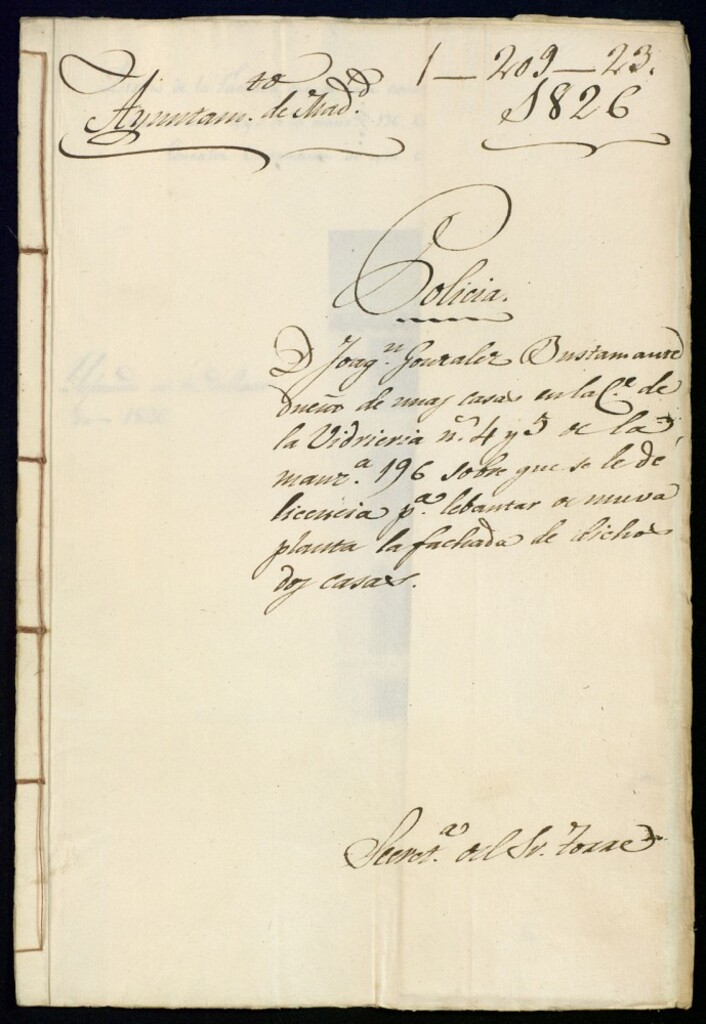 1-209-23.
Ayuntam.to de Mad.d
1826
Policia.
D Joaq.n Gonzalez Bustamante
dueño de unas casas en la C.e de
la Vidrieria n.o 4 y 5 de la
manz.a 196 sobre que se le dé
licencia p.a lebantar de nueva
planta la fachada de dichas
dos casas.
Secret.a del Sr. Torre